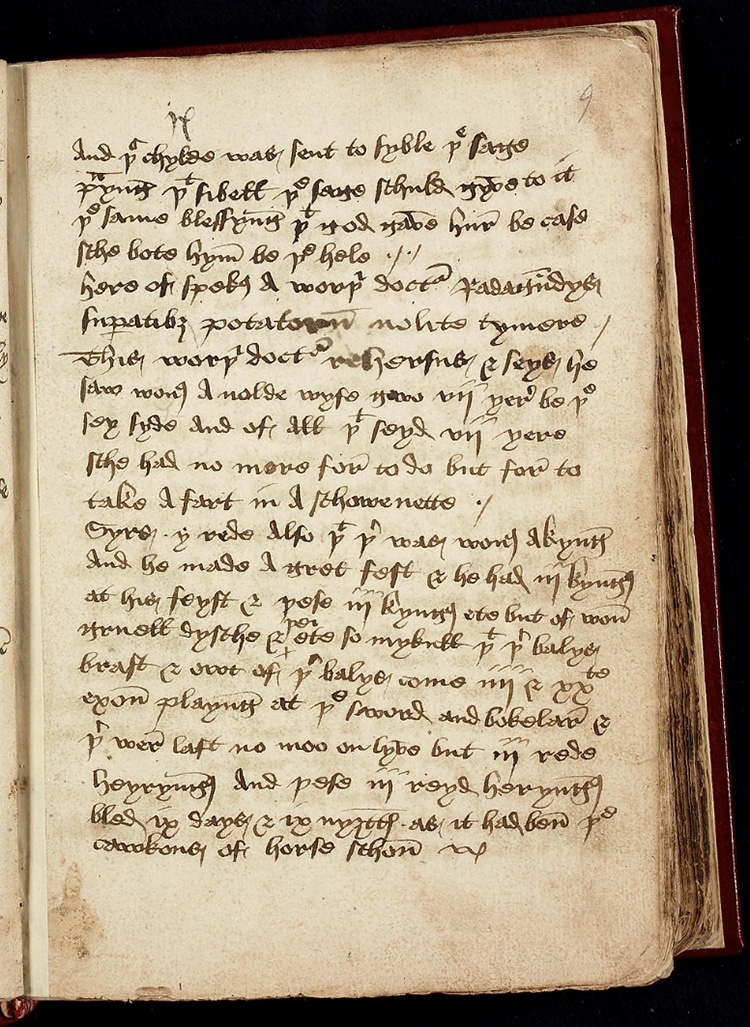 9
And þt chylde was sent to syble þe sage
prayng þt sibell þe sage schuld gyve to it
þe same blessyng þt god gave hur be case
sche bote hym be þe hele ·/·/
here of spekes A worþi doctr Radagundys
supatibȝ potatorum nolite tymere /
This worþi doctr rehersus & seys he
saw wons A nolde wyfe gwo vii yer be þe
sey syde And of All þt seyd vii yere
sche had no more for to do but for to
take A fart in A schowenette ·/
Syrs · y rede Also þt þr was wons A kyng
And he made A gret fest & he had iii kyngs
at his feyst & þese iii kyngs ete but of won
gruell dysche & þei ete so mykull þt þr balys
brast & owt of þr balys come iiii & xxte
exon playng at þe sword and bokelar &
þr wer laft no moo on lyve but iii rede
heyryngs And þese iii reyd heryngs
bled ix days & ix nyȝts as it had ben þe
cawkons of horse schon